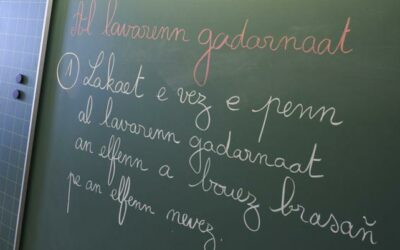 Al lavarenn gadarnaat
1 Lakaet e vez e penn
al lavarenn gadarnaat
an elfenn a bouez brasañ
pe an elfenn nevez.